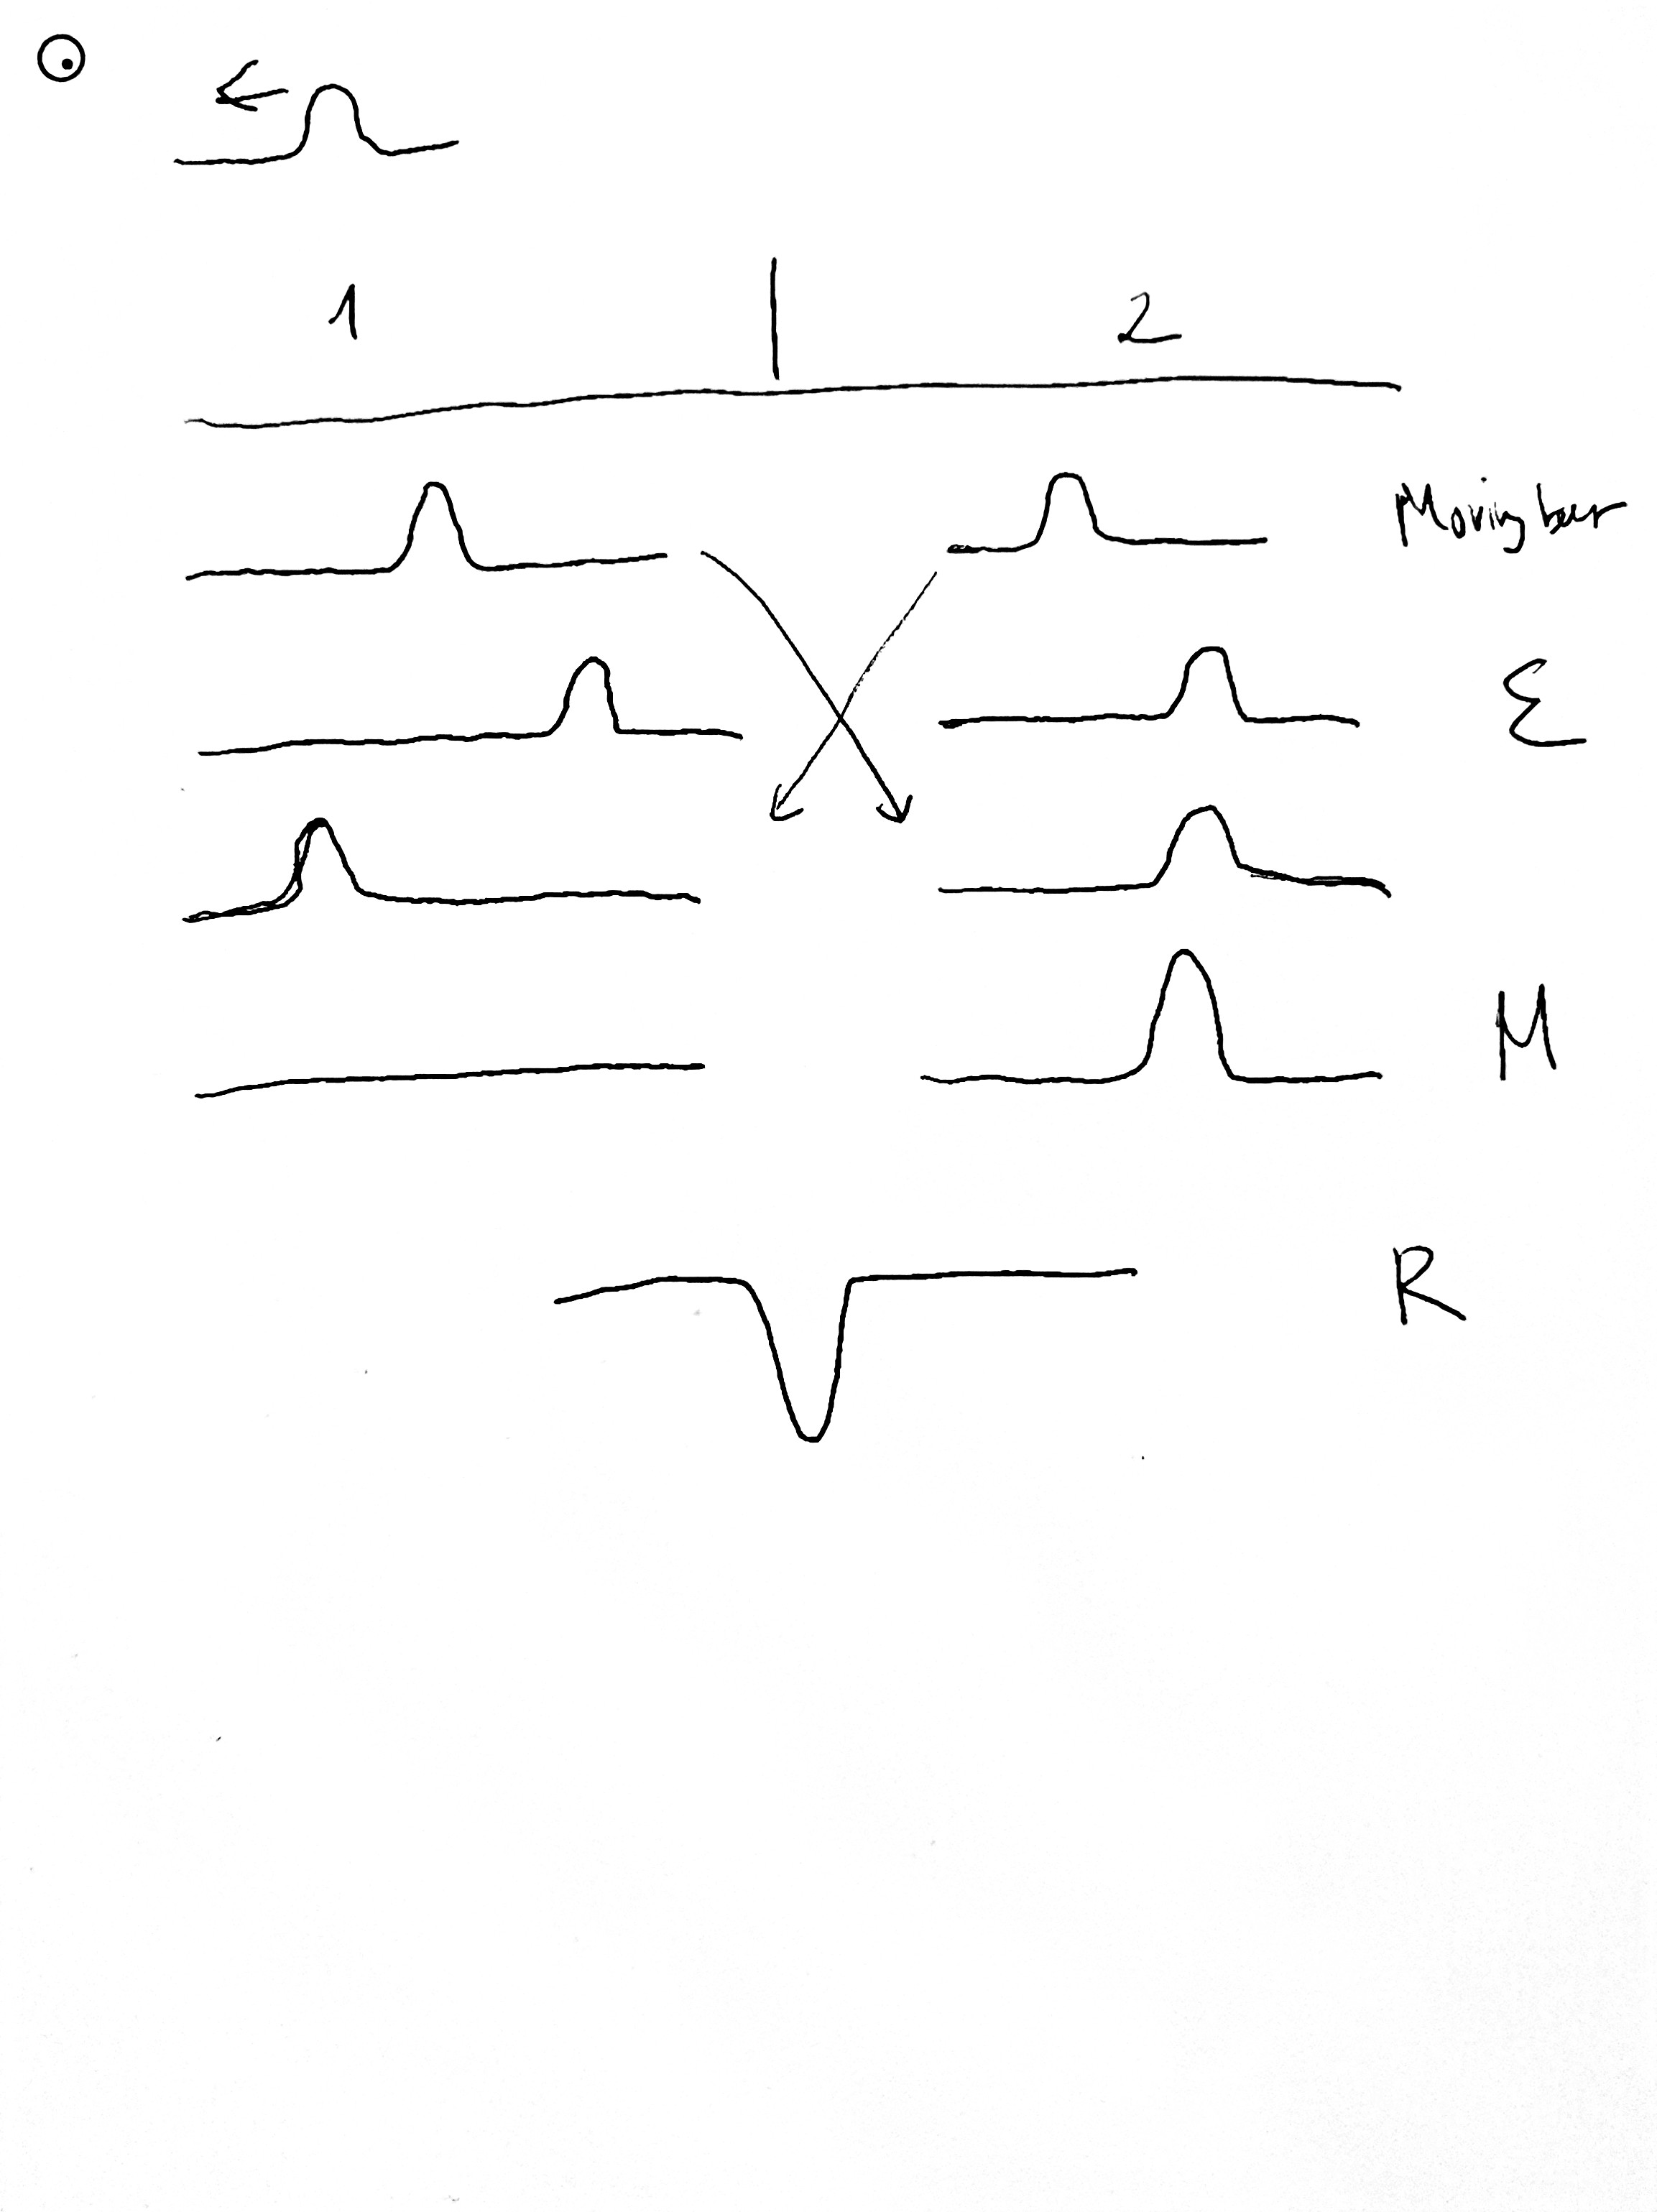 1 2
Moving bar
Ɛ
M
R